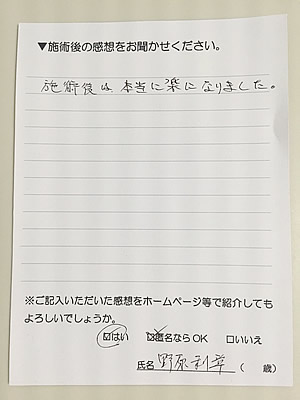 ▼施術後の感想をお聞かせください。
施術後は、本当に楽になりました。
※ご記入いただいた感想をホームページ等で紹介しても
よろしいでしょうか。
☑はい ☑匿名ならOK □いいえ
氏名 野原利幸 ( 歳)